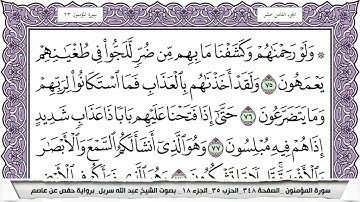 الجزء الثامن عشر سورة المؤمنون ٢٣
وَلَوْ رَحِمْنَٰهُمْ وَكَشَفْنَا مَا بِهِم مِّن ضُرٍّ لَّلَجُّوا۟ فِى طُغْيَٰنِهِمْ
يَعْمَهُونَ ٧٥ وَلَقَدْ أَخَذْنَٰهُم بِٱلْعَذَابِ فَمَا ٱسْتَكَانُوا۟ لِرَبِّهِمْ
وَمَا يَتَضَرَّعُونَ ٧٦ حَتَّىٰٓ إِذَا فَتَحْنَا عَلَيْهِم بَابًا ذَا عَذَابٍ شَدِيدٍ
إِذَا هُمْ فِيهِ مُبْلِسُونَ ٧٧ وَهُوَ ٱلَّذِىٓ أَنشَأَ لَكُمُ ٱلسَّمْعَ وَٱلْأَبْصَٰرَ
سورة المؤمنون_ الصفحة ٣٤٨_ الحزب ٣٥_ الجزء ١٨_ بصوت الشيخ عبد الله سربل_ برواية حفص عن عاصم